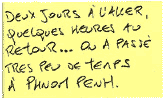 DEUX JOURS À L'ALLER,
QUELQUES HEURES AU
RETOUR... ON A PASSÉ
TRES PEU DE TEMPS
À PHNOM PENH.